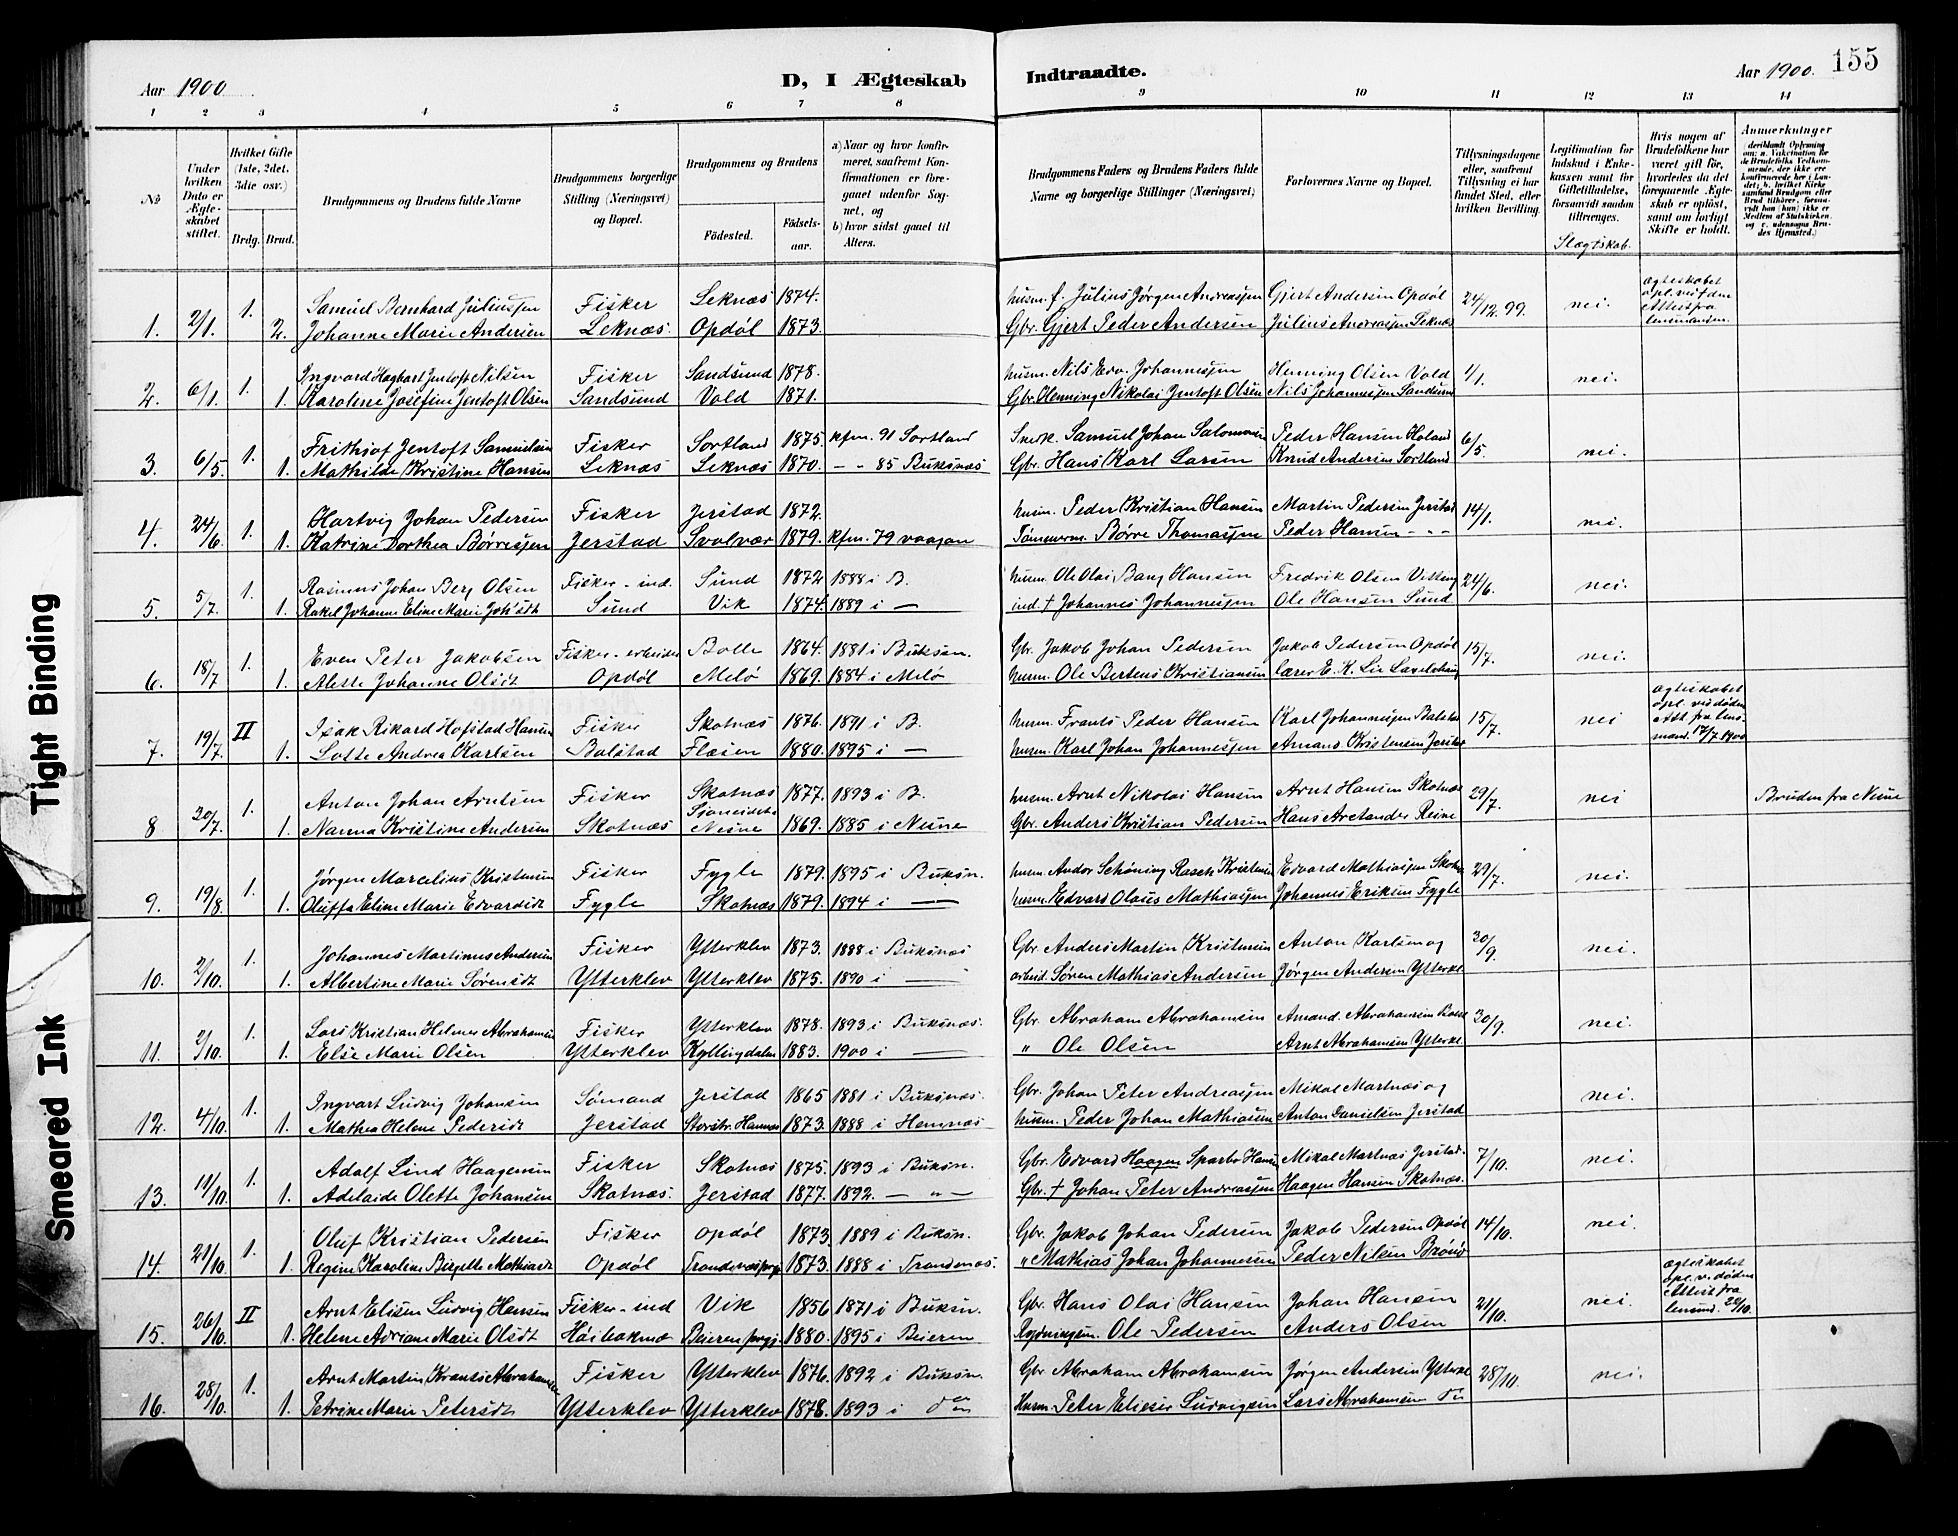 Aar 1900.
D, I Ægteskab
Indtraadte.
Aar 1900.
155
1 2 3 4 5 6 7 8 9 10 11 12 13 14
No
Under hvilken Dato er Ægteskabet stiftet.
Hvilket Gifte (1ste, 2det, 3die osv.)
Brdg. Brud.
Brudgommens og Brudens fulde Navne
Brudgommens borgerlige Stilling (Næringsvei) og Bopæl.
Brudgommens og Brudens
Fødested.
Fødselsaar.
a) Naar og hvor konfirmeret, saafremt Konfirmationen er foregaaet udenfor Sognet, og
b) hvor sidst gaaet til Alters.
Brudgommens Faders og Brudens Faders fulde Navne og borgerlige Stillinger (Næringsvei)
Forlovernes Navne og Bopæl.
Tillysningsdagene eller, saafremt Tillysning ei har fundet Sted, efter hvilken Bevilling.
Legitimation for Indskud i Enkekassen samt for Giftetilladelse, forsaavidt saadan tiltrænges.
Slægtskab.
Hvis nogen af Brudefolkene har været gift før, hvorledes da det foregaaende Ægteskab er opløst, samt om lovligt Skifte er holdt.
Anmerkninger
1. 2/1. 1. Samuel Bernhard Juliussen Fisker Leknæs 1874. husm. f. Julius Jørgen Andreassen Gjert Andersen Opdøl 24/12 99. nei. ægteskabet opl. ved døden Attest fra lensmanden.
2. Johanne Marie Andersen Leknæs. Opdøl 1873. Gbr. Gjert Peder Andersen Julius Andreassen Leknæs
2. 6/1. 1. Ingvard Hagbart Jentoft Nilsen Fisker Sandsund 1878. husm. Nils Edv. Johannessen Henning Olsen Vold 1/1. nei.
1. Karoline Josefine Jentoft Olsen Sandsund Vold 1871. Gbr. Henning Nikolai Jentoft Olsen Nils Johannessen Sandsund
3. 6/5. 1. Frithjof Jentoft Samuelsen Fisker Sortland 1875. kfm. 91 Sortland Snedk. Samuel Johan Salomonsen Peder Hansen Holand 6/5. nei.
1. Mathilde Kristine Hansen Leknæs Leknæs 1870. — " 85 Buksnæs Gbr. Hans Karl Larsen Knud Andersen Sortland
4. 24/6. 1. Hartvig Johan Pedersen Fisker Jerstad 1872. husm. Peder Kristian Hansen Martin Pedersen Jerstad 14/1. nei.
1. Katrine Dorthea Børresen Jerstad Svolvær 1879. kfm. 79 vaagan Tømmerm. Børre Thomassen Peder Hansen - " -
5. 5/7. 1. Rasmus Johan Berg Olsen Fisker - ind. Sund 1872 1888 i B. husm. Ole Olai Bang Hansen Fredrik Olsen 24/6. nei.
1. Rakel Johanne Eline Marie Joh'sdt Sund Vik 1874. 1889 i — ind. † Johannes Johannessen Ole Hansen Sund
6. 18/7 1. Even Peter Jakobsen Fisker - arbeider Bolle 1864. 1881 i Buksn. Gbr. Jakob Johan Pedersen Jakob Pedersen Opdøl 15/7. nei.
1. Alette Johanne Olsdt Opdøl Melø 1869. 1884 i Melø husm. Ole Berteus Kristiansen lærer E. K. Lie
7. 19/7. II Isak Rikard Hofstad Hansen Fisker Skotnæs 1876. 1891 i B. husm. Frants Peder Hansen Karl Johannessen Balstad 15/7. nei ægteskabet opl. ved døden Att. fra lensmand. 17/7 1900
1. Lotte Andrea Karlsen Balstad Flæsen 1880. 1895 i — husm. Karl Johan Johannessen Amand. Kristensen Jerstad
8 20/7. 1. Anton Johan Arntsen Fisker Skotnæs 1877. 1893 i B. husm. Arnt Nikolai Hansen Arnt Hansen Skotnæs 29/7. nei Bruden fra Nesne
1. Nanna Kristine Andersen Skotnæs Nesne 1869. 1885 i Nesne Gbr. Anders Kristian Pedersen Hans Arctander Reine
9. 19/8. 1. Jørgen Marcelius Kristensen Fisker Fygle 1879. 1895 i Buksn. husm. Andor Schøning Rasch Kristensen Edvard Mathiassen Skotnæs 29/7. nei.
1. Oluffa Eline Marie Edvardsdt Fygle Skotnæs 1879. 1894 i — husm. Edvard Olaus Mathiassen Johannes Eriksen Fygle
10. 2/10. 1. Johannes Martinus Andersen Fisker Ytterklev 1873. 1888 i Buksnæs Gbr. Anders Martin Kristensen Anton Karlsen og 30/9. nei.
1. Albertine Marie Sørensdt Ytterklev Ytterklev 1875. 1890 i — arbeid. Søren Mathias Andersen Jørgen Andersen Ytterkl.
11. 2/10. 1. Lars Kristian Helmer Abrahamsen Fisker Ytterklev 1878. 1893 i Buksnæs. Gbr. Abraham Abrahamsen Amand. Abrahamsen 30/9. nei.
1. Else Marie Olsen Ytterklev Kyllingdalen 1883. 1900 i — " Ole Olsen Arnt Abrahamsen Ytterkl.
12. 4/10. 1. Ingvart Ludvig Johansen Sømand Jerstad 1865 1881 i Buksnæs. Gbr. Johan Peter Andreassen Mikal Martnæs og nei.
1. Mathea Helene Pedersdt Jerstad 1873. 1888 i Hemnæs husm. Peder Johan Mathiassen Anton Danielsen Jerstad
13. 11/10. 1. Adolf Lind Haagensen Fisker Skotnæs 1875. 1893 i Buksn. Gbr. Edvard Haagen Sparbo Hansen Mikal Martnæs Jerstad. 7/10. nei.
1. Adelaide Olette Johansen Skotnæs. Jerstad 1877. 1892. — " — Gbr. † Johan Peter Andreassen Haagen Hansen Skotnæs.
14. 21/10. 1. Oluf Kristian Pedersen Fisker Opdøl 1873. 1889 i Buksn. Gbr. Jakob Johan Pedersen Jakob Pedersen Opdøl 14/10. nei.
1. Regine Karoline Birgitte Mathiasdt Opdøl Trondenæs prgj. 1873. 1888 i Trondenæs. " Mathias Johan Johannessen Peder Nilsen
15. 26/10. II Arnt Elisen Ludvig Hansen Fisker - ind Vik 1856 1871 i Buksn. Gbr. Hans Olai Hansen Johan Hansen 21/10. nei. ægteskabet opl. v. døden Attest fra lensmd. 22/10.
1. Helene Adriane Marie Olsdt Beieren prgj 1880. 1895 i Beieren Rydningsm. Ole Pedersen Anders Olsen
16. 28/10. 1. Arnt Martin Krants Abrahamsen Fisker Ytterklev 1876. 1892 i Buksn. Gbr. Abraham Abrahamsen Jørgen Andersen Ytterkl 28/10. nei.
1. Petrine Marie Petersdt Ytterklev Ytterklev 1878. 1893 i do Husm. Peter Elieser Ludvigsen Lars Abrahamsen do
Tight Binding
Smeared Ink